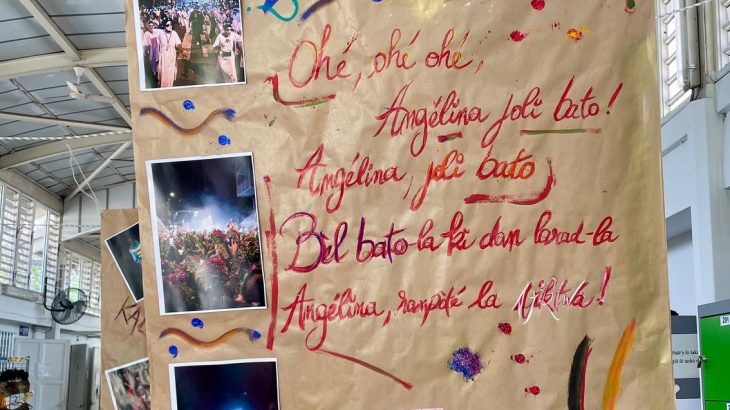 Ohé, ohé ohé,
Angélina joli bato!
Angélina, joli bato
Bèl bato-la ki dan larad-la
Angélina, ranpôté la viktwa!
KA
291